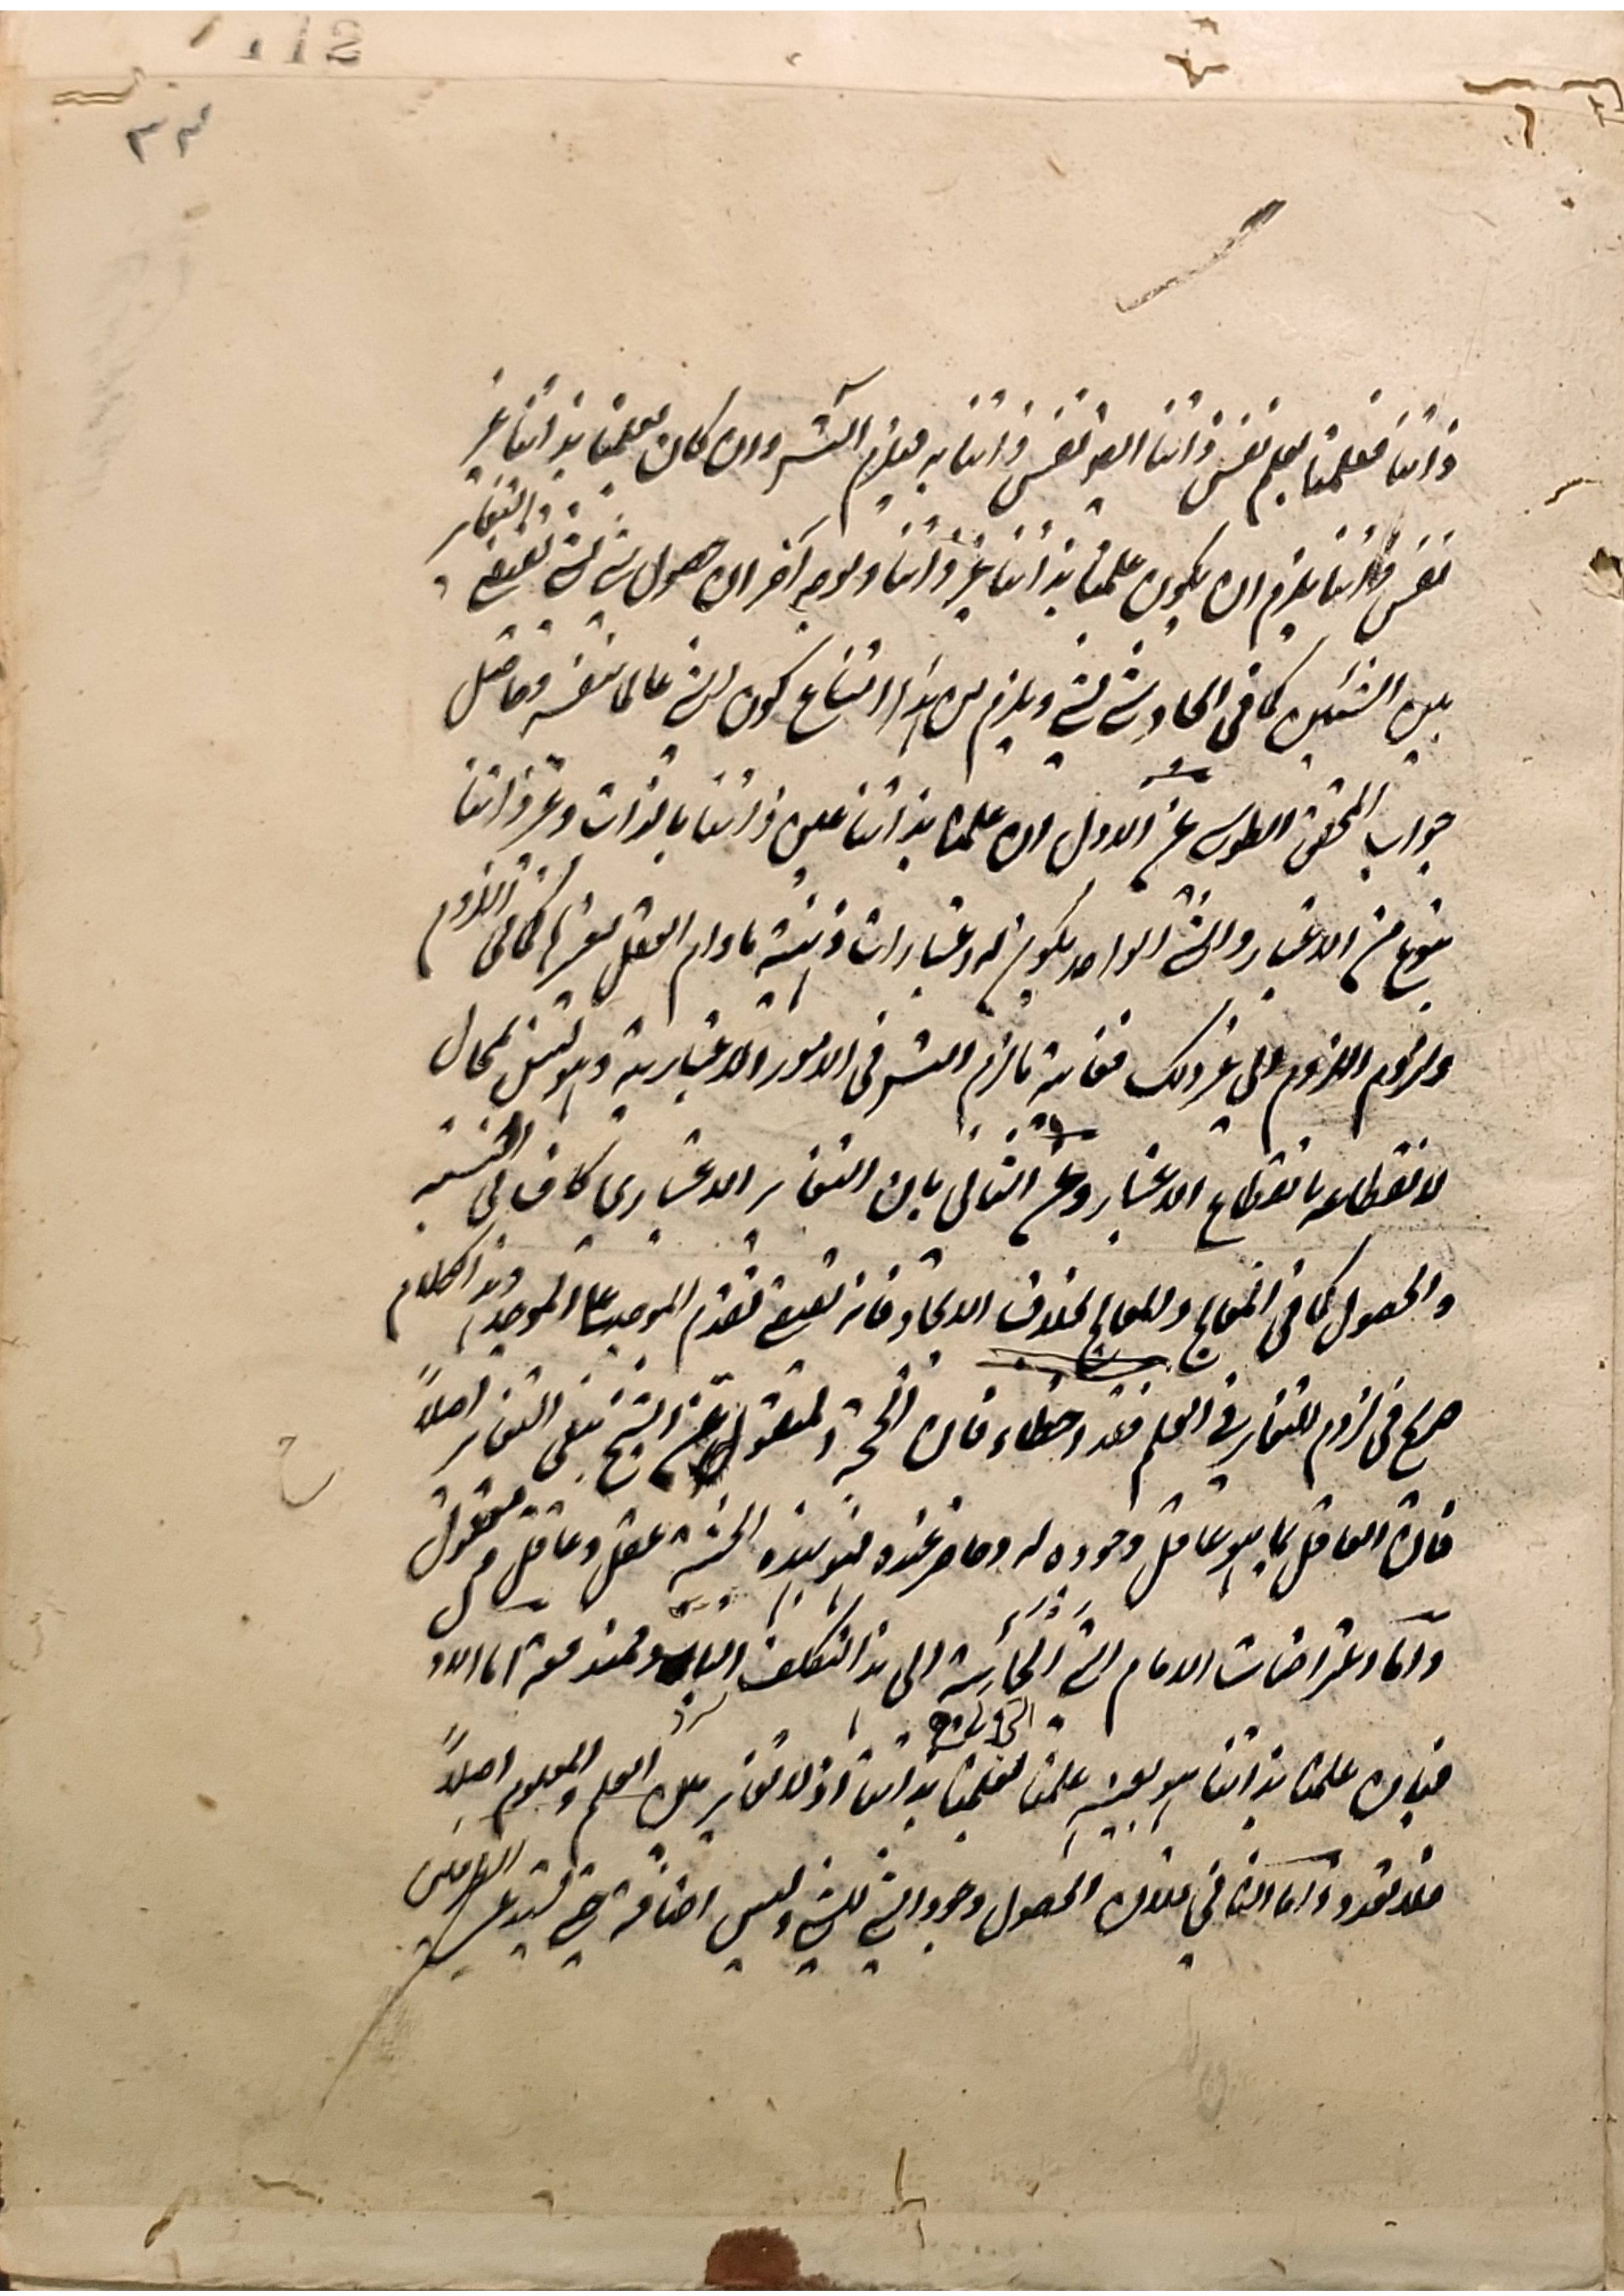 ٣٣
ذاتنا فعلمنا بعلم نفس ذاتنا ايضا نفس ذاتنا به فيلزم التسـ وان كان لعلمنا بذاتنا غير
نفس ذاتنا يلزم ان يكون علمنا بذاتنا غير ذاتنا وبوجه آخر ان حصول شئ لشئ يقتضى التغاير
بين الشيئين كما فى ايجاد شئ لشئ ويلزم من هذا امتناع كون الشئ عالما بنفسه وحاصل
جواب المحقق الطوسى عن الاول ان علمنا بذاتنا عين ذاتنا بالذات وغير ذاتنا
بنوع من الاعتبار والشئ الواحد يكون له اعتبارات ذهنية ما دام العقل يعتبرها كما فى اللزوم
ولزوم اللزوم الى غير ذلك فغاية ما لزم التسـ فى الامور الاعتبارية وهو ليس بمحال
لانقطاعه بانقطاع الاعتبار وعن الثانى بان التغاير الاعتبارى كاف فى النسبة
والحصول كما فى المعالج والمعالج بخلاف الايجاد فانه يقتضى تقدم الموجد على الموجد وهذا الكلام
صريح فى لزوم التغاير فى العلم فقد اخطاء فان الحجة المنقولة عن الشيخ تنفى التغاير اصلاً
فان العاقل بما هو عاقل وجوده له وحاضر عنده فهو بهذه الحيثية عقل وعاقل ومعقول
واما اعتراضات الامام التى الجأته الى هذا التكلف البارد فمندفعة اما الاول
فبان علمنا بذاتنا هو بعينه علمنا بعلمنا بذاتنا اذ لا تغاير بين العلم والمعلوم اصلاً
فلا تعدد واما الثانى فلان الحصول وجود الشئ للشئ وليس اضافة حتى يستدعى الطرفين